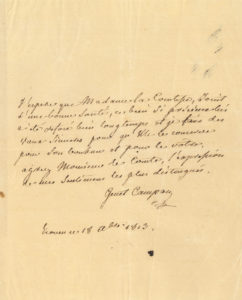 J'espère que Madame la Comtesse, jouit
d'une bonne santé, ce bien si précieux
a été désiré bien longtemps et je fais des
vœux sincères pour qu'Elle le conserve
pour son bonheur et pour le vôtre.
agréez Monsieur le Comte, l'expression
de mes sentiments les plus distingués.
Genet Campan
Ecouen ce 18 1813